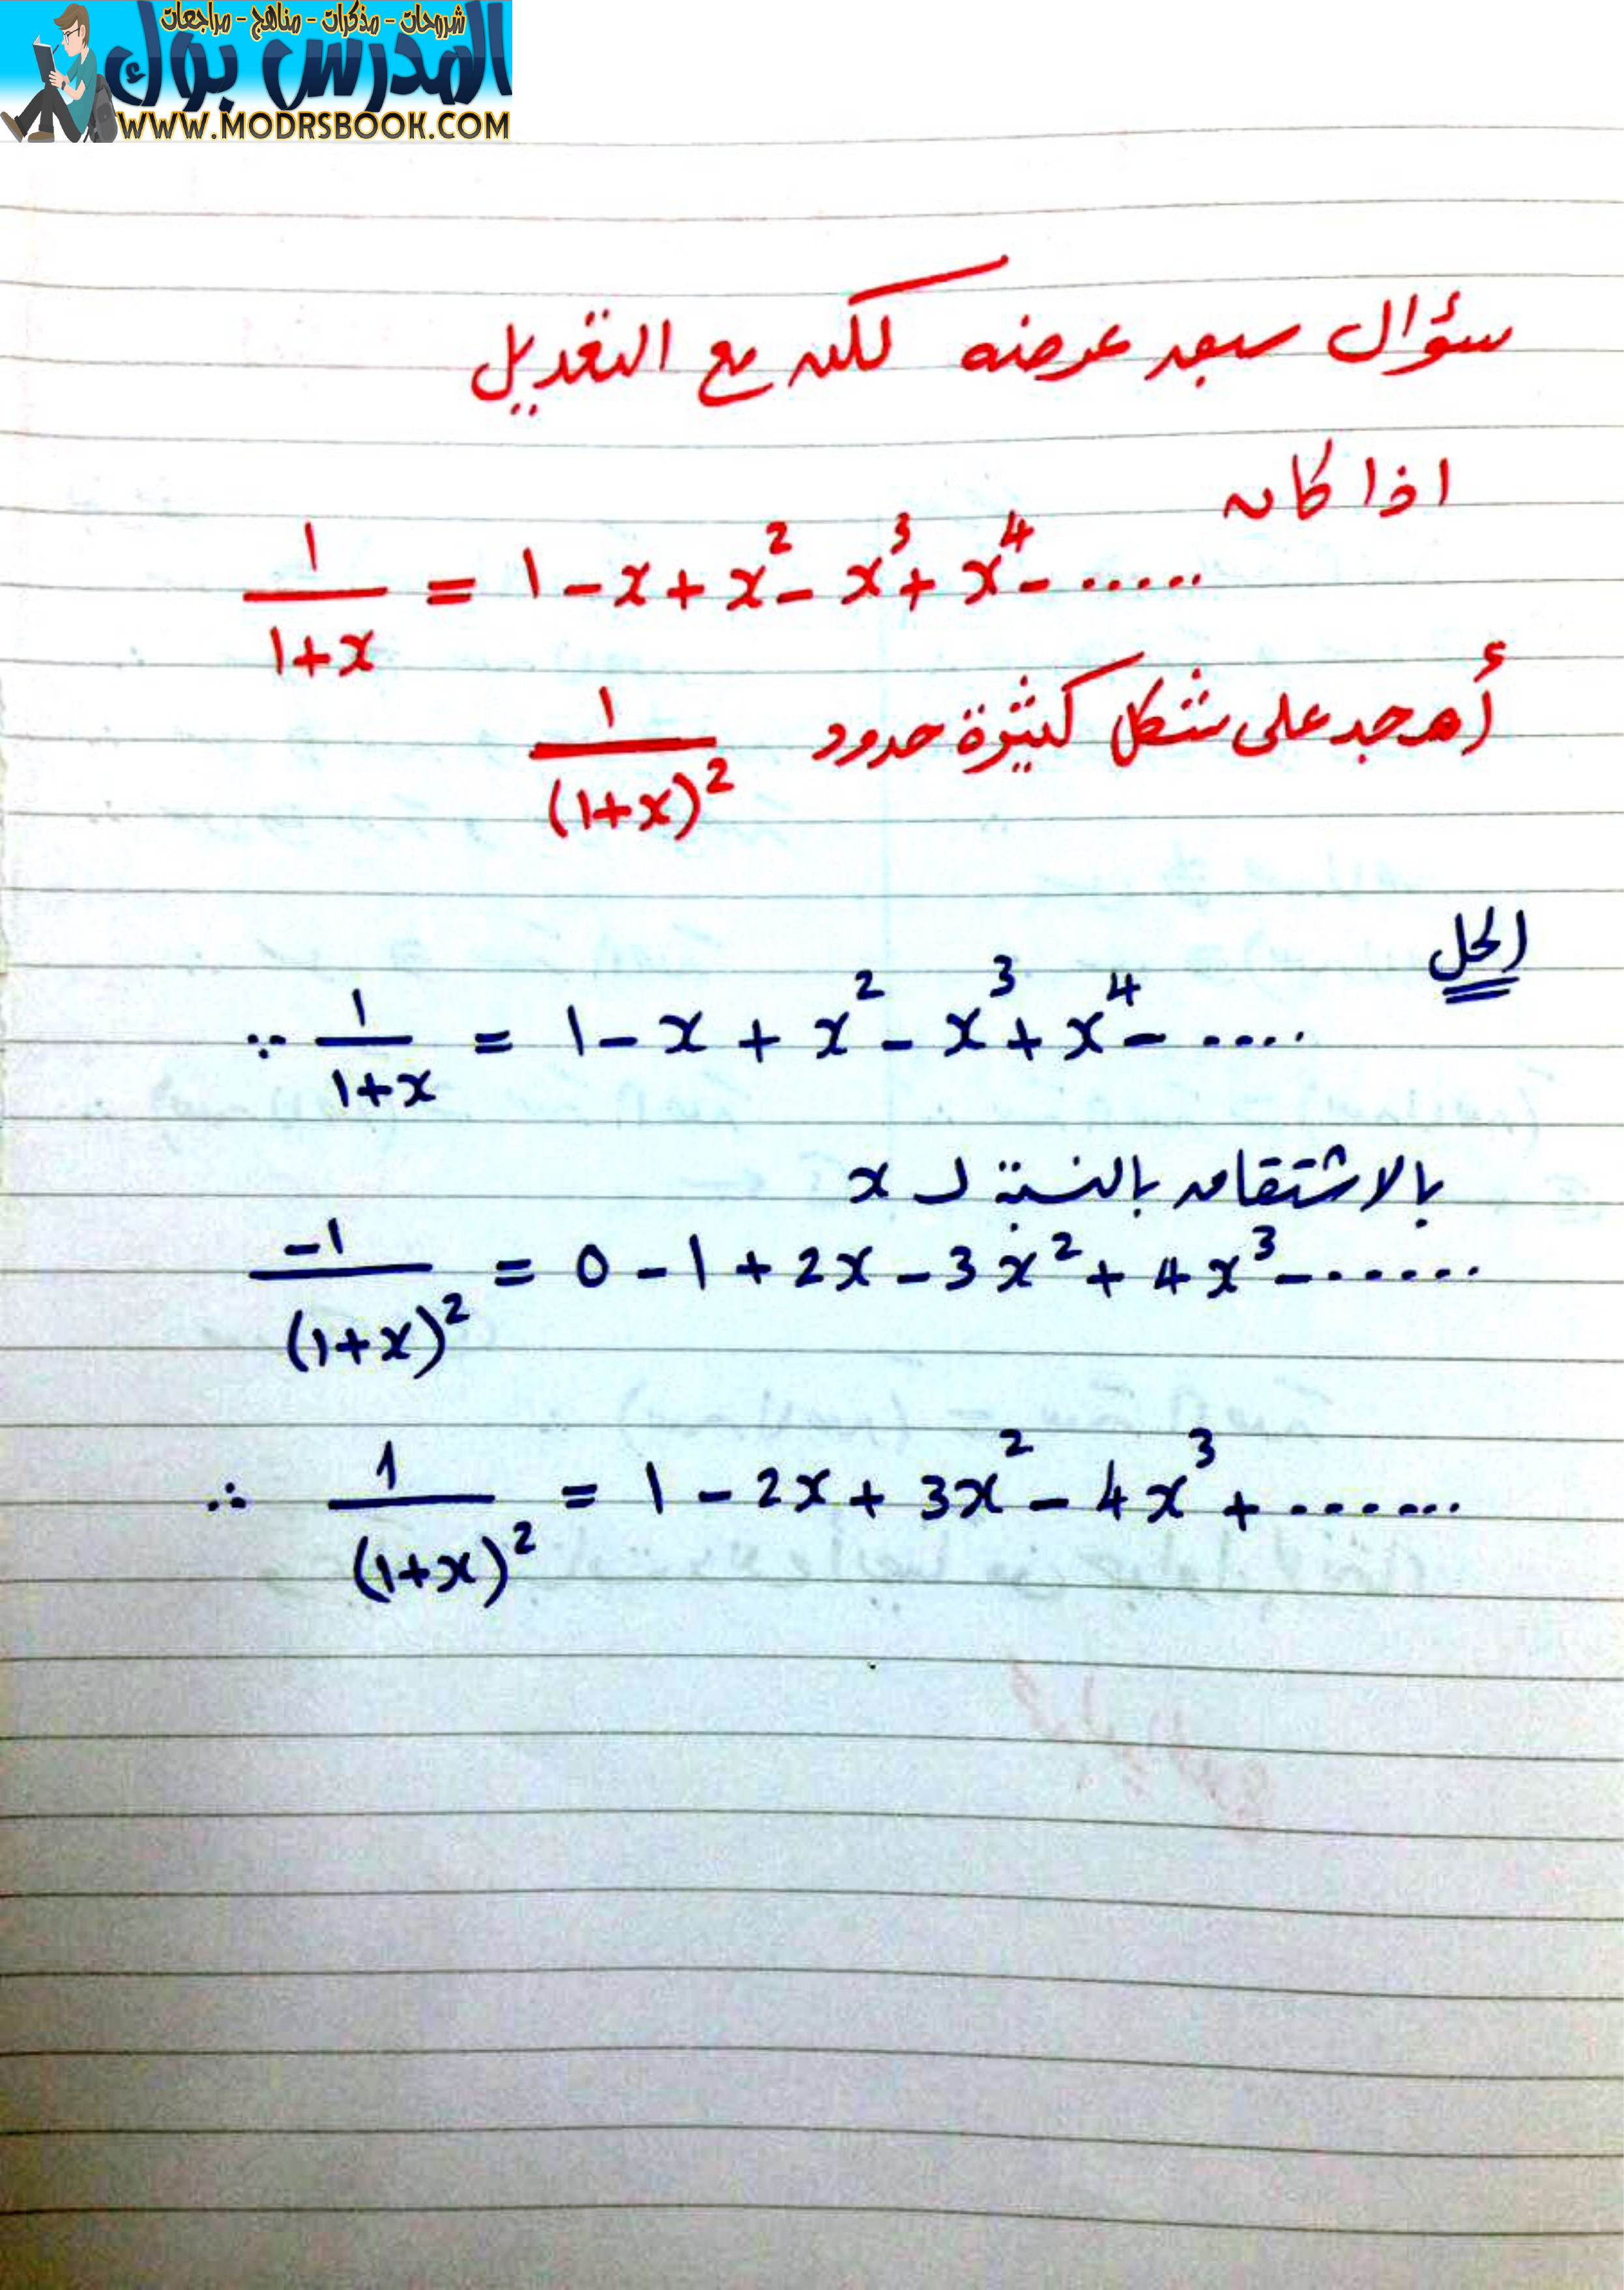 شروحات - مذكرات - مناهج - مراجعات
المدرس بوك
WWW.MODRSBOOK.COM
سؤال سبق عرضه لكن مع التعديل
اذا كان
1/(1+x) = 1 - x + x² - x³ + x⁴ - .....
أوجد على شكل كثيرة حدود 1/(1+x)²
الحل
∵ 1/(1+x) = 1 - x + x² - x³ + x⁴ - ....
بالاشتقاق بالنسبة لـ x
-1/(1+x)² = 0 - 1 + 2x - 3x² + 4x³ - ......
∴ 1/(1+x)² = 1 - 2x + 3x² - 4x³ + ......